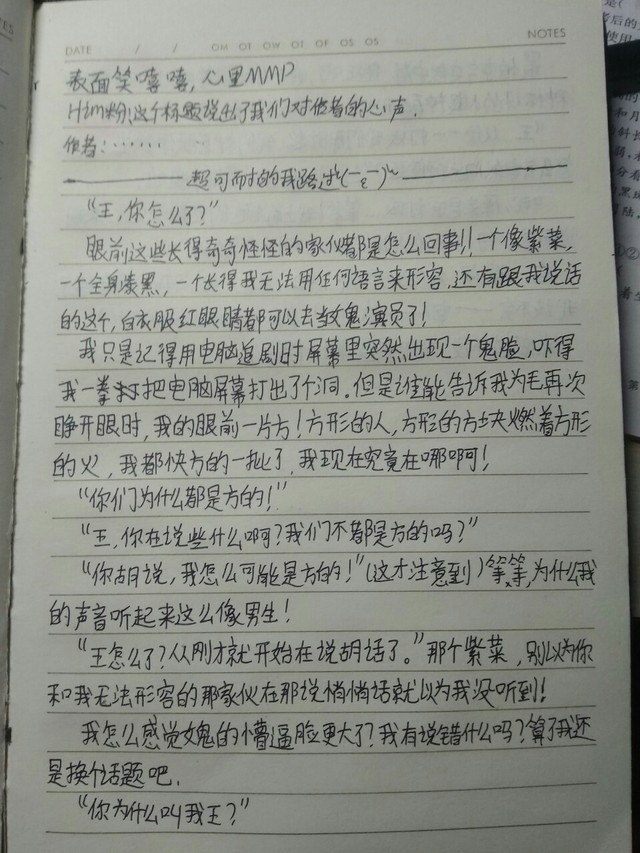 DATE / / OM OT OW OT OF OS OS NOTES
表面笑嘻嘻,心里MMP
Him粉:这个标题说出了我们对作者的心声.
作者:······
超可耐的我路过~(-ε-)~
“王,你怎么了?”
眼前这些长得奇奇怪怪的家伙都是怎么回事!!一个像紫菜,
一个全身漆黑,一个长得我无法用任何语言来形容,还有跟我说话
的这个,白衣服红眼睛都可以去当女鬼演员了!
我只是记得用电脑追剧时屏幕里突然出现一个鬼脸,吓得
我一拳把电脑屏幕打出了个洞。但是谁能告诉我为毛再次
睁开眼时,我的眼前一片方!方形的人,方形的方块燃着方形
的火,我都快方的一批了,我现在究竟在哪啊!
“你们为什么都是方的!”
“王,你在说些什么啊?我们不都是方的吗?”
“你胡说,我怎么可能是方的!”(这才注意到)等等,为什么我
的声音听起来这么像男生!
“王怎么了?从刚才就开始在说胡话了。”那个紫菜,别以为你
和我无法形容的那家伙在那说悄悄话就以为我没听到!
我怎么感觉女鬼的懵逼脸更大了?我有说错什么吗?算了我还
是换个话题吧.
“你为什么叫我王?”